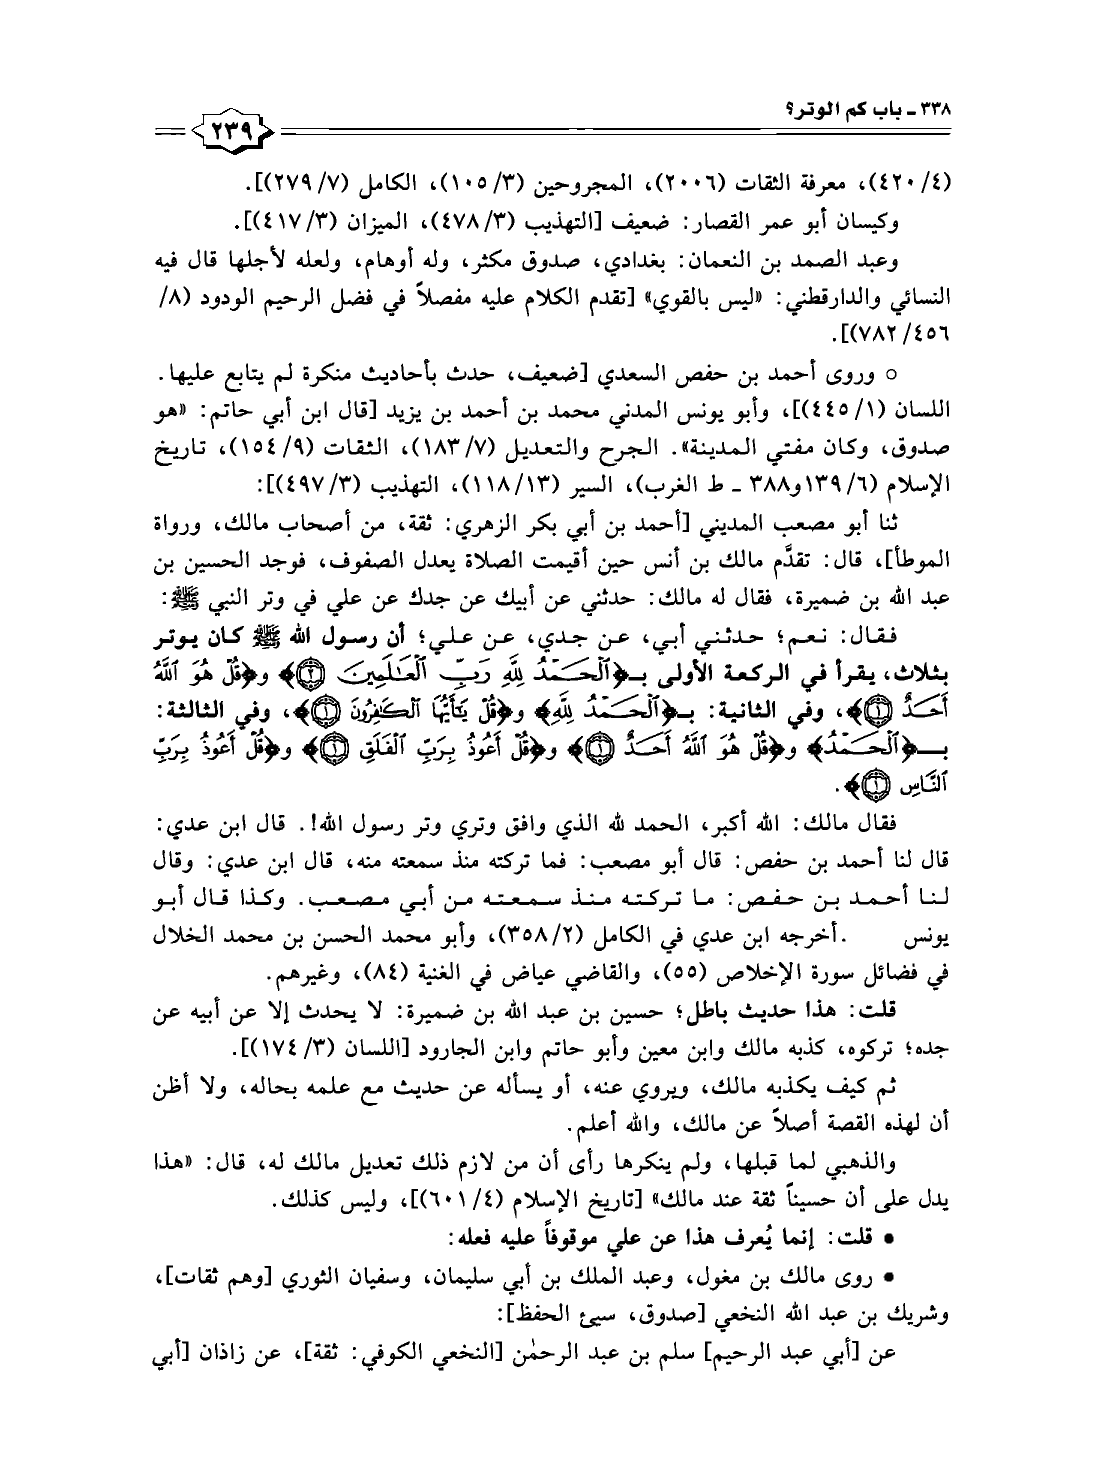 ٣٣٨ ـ باب كم الوتر؟
٢٣٩
(٤/ ٤٢٠)، معرفة الثقات (٢٠٠٦)، المجروحين (٣/ ١٠٥)، الكامل (٧/ ٢٧٩)].
وكيسان أبو عمر القصار: ضعيف [التهذيب (٣/ ٤٧٨)، الميزان (٣/ ٤١٧)].
وعبد الصمد بن النعمان: بغدادي، صدوق مكثر، وله أوهام، ولعله لأجلها قال فيه
النسائي والدارقطني: «ليس بالقوي» [تقدم الكلام عليه مفصلاً في فضل الرحيم الودود (٨/
٤٥٦/ ٧٨٢)].
○ وروى أحمد بن حفص السعدي [ضعيف، حدث بأحاديث منكرة لم يتابع عليها.
اللسان (١/ ٤٤٥)]، وأبو يونس المدني محمد بن أحمد بن يزيد [قال ابن أبي حاتم: «هو
صدوق، وكان مفتي المدينة». الجرح والتعديل (٧/ ١٨٣)، الثقات (٩/ ١٥٤)، تاريخ
الإسلام (٦/ ١٣٩و٣٨٨ ـ ط الغرب)، السير (١٣/ ١١٨)، التهذيب (٣/ ٤٩٧)]:
ثنا أبو مصعب المديني [أحمد بن أبي بكر الزهري: ثقة، من أصحاب مالك، ورواة
الموطأ]، قال: تقدَّم مالك بن أنس حين أقيمت الصلاة يعدل الصفوف، فوجد الحسين بن
عبد الله بن ضميرة، فقال له مالك: حدثني عن أبيك عن جدك عن علي في وتر النبي ﷺ:
فقال: نعم؛ حدثني أبي، عن جدي، عن علي؛ أن رسول الله ﷺ كان يوتر
بثلاث، يقرأ في الركعة الأولى بـ﴿ٱلْحَمْدُ لِلَّهِ رَبِّ ٱلْعَـٰلَمِينَ ۝٢﴾ و﴿قُلْ هُوَ ٱللَّهُ
أَحَدٌ ۝١﴾، وفي الثانية: بـ﴿ٱلْحَمْدُ لِلَّهِ﴾ و﴿قُلْ يَـٰٓأَيُّهَا ٱلْكَـٰفِرُونَ ۝١﴾، وفي الثالثة:
بـ﴿ٱلْحَمْدُ﴾ و﴿قُلْ هُوَ ٱللَّهُ أَحَدٌ ۝١﴾ و﴿قُلْ أَعُوذُ بِرَبِّ ٱلْفَلَقِ ۝١﴾ و﴿قُلْ أَعُوذُ بِرَبِّ
ٱلنَّاسِ ۝١﴾.
فقال مالك: الله أكبر، الحمد لله الذي وافق وتري وتر رسول الله!. قال ابن عدي:
قال لنا أحمد بن حفص: قال أبو مصعب: فما تركته منذ سمعته منه، قال ابن عدي: وقال
لنا أحمد بن حفص: ما تركته منذ سمعته من أبي مصعب. وكذا قال أبو
يونس .أخرجه ابن عدي في الكامل (٢/ ٣٥٨)، وأبو محمد الحسن بن محمد الخلال
في فضائل سورة الإخلاص (٥٥)، والقاضي عياض في الغنية (٨٤)، وغيرهم.
قلت: هذا حديث باطل؛ حسين بن عبد الله بن ضميرة: لا يحدث إلا عن أبيه عن
جده؛ تركوه، كذبه مالك وابن معين وأبو حاتم وابن الجارود [اللسان (٣/ ١٧٤)].
ثم كيف يكذبه مالك، ويروي عنه، أو يسأله عن حديث مع علمه بحاله، ولا أظن
أن لهذه القصة أصلاً عن مالك، والله أعلم.
والذهبي لما قبلها، ولم ينكرها رأى أن من لازم ذلك تعديل مالك له، قال: «هذا
يدل على أن حسيناً ثقة عند مالك» [تاريخ الإسلام (٤/ ٦٠١)]، وليس كذلك.
• قلت: إنما يُعرف هذا عن علي موقوفاً عليه فعله:
• روى مالك بن مغول، وعبد الملك بن أبي سليمان، وسفيان الثوري [وهم ثقات]،
وشريك بن عبد الله النخعي [صدوق، سيئ الحفظ]:
عن [أبي عبد الرحيم] سلم بن عبد الرحمٰن [النخعي الكوفي: ثقة]، عن زاذان [أبي